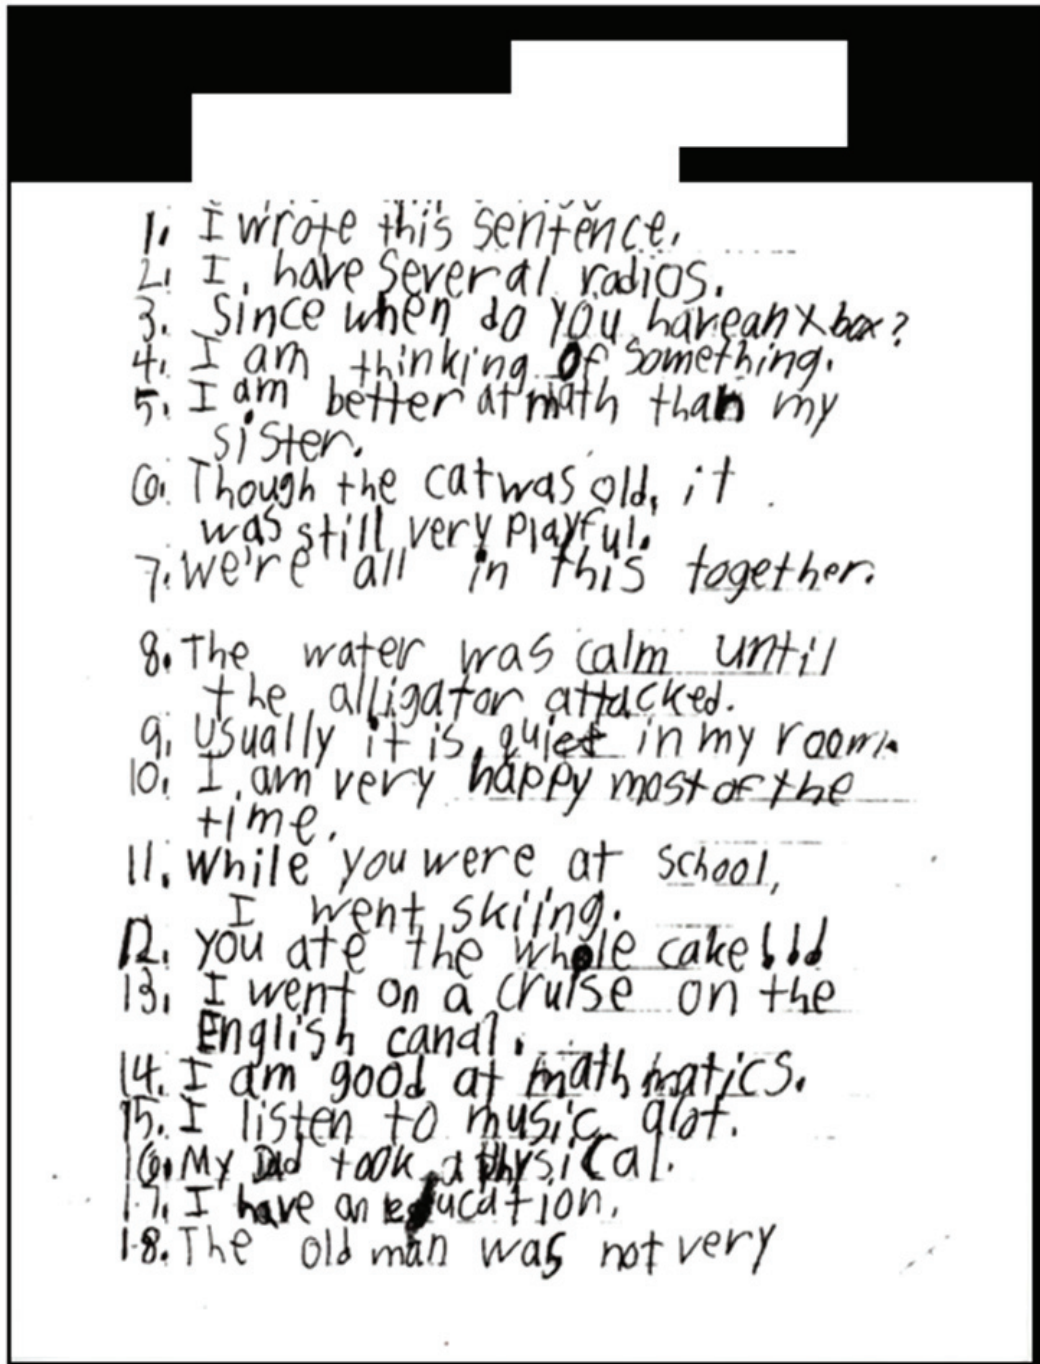 1. I wrote this sentence.
2. I have several radios.
3. Since when do you have an x box?
4. I am thinking of something.
5. I am better at math than my
sister.
6. Though the cat was old, it
was still very playful.
7. we're all in this together.
8. The water was calm until
the alligator attacked.
9. Usually it is quiet in my room.
10. I am very happy most of the
time.
11. While you were at school,
I went skiing.
12. you ate the whole cake!!!
13. I went on a cruise on the
English canal.
14. I am good at mathmatics.
15. I listen to music alot.
16. My Dad took a physical.
17. I have an education.
18. The old man was not very